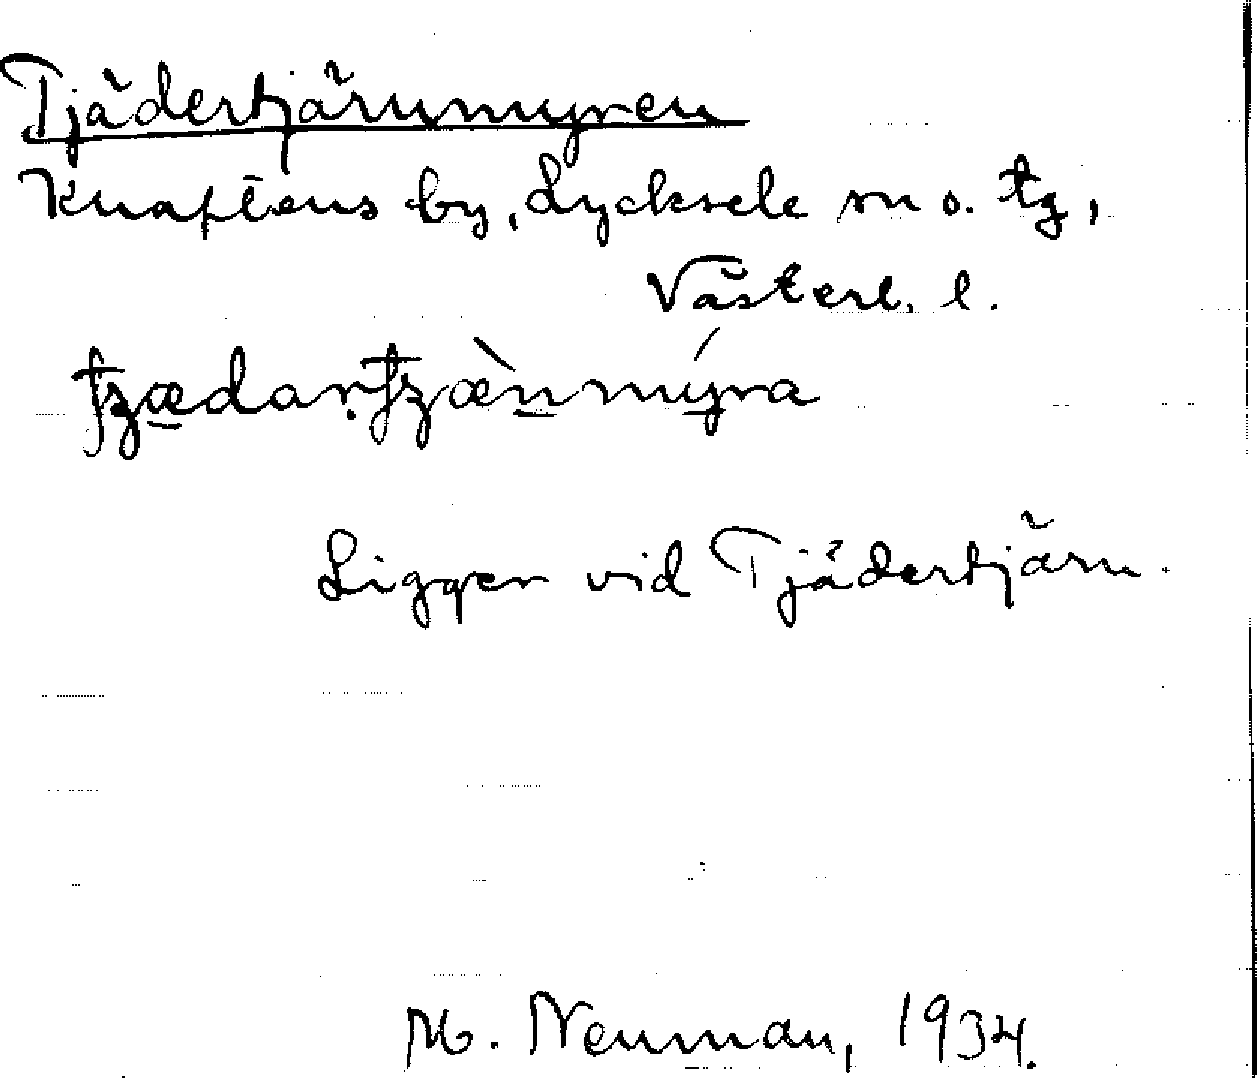 Tjädertjärnmyren
Knaftens by, Lycksele sn o. tg,
Västerb. l.
Ligger vid Tjädertjärn.
M. Neuman, 1934.